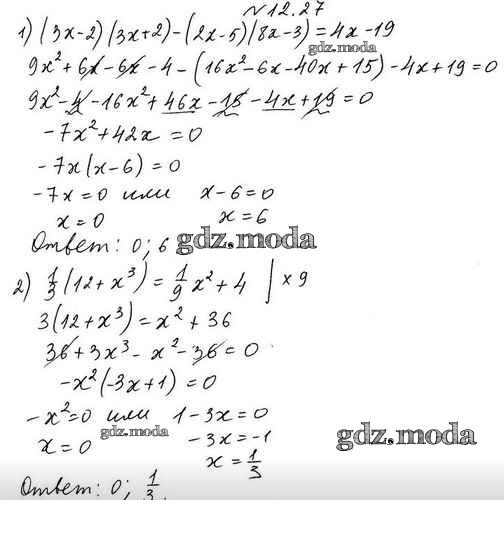 №12.27
1) (3x-2)(3x+2)-(2x-5)(8x-3)=4x-19
9x²+6x-6x-4-(16x²-6x-40x+15)-4x+19=0
9x²-4-16x²+46x-15-4x+19=0
-7x²+42x=0
-7x(x-6)=0
-7x=0 или x-6=0
x=0 x=6
Ответ: 0; 6 gdz.moda
2) 1/3(12+x³)=1/9x²+4 | ×9
3(12+x³)=x²+36
36+3x³-x²-36=0
-x²(-3x+1)=0
-x²=0 или 1-3x=0
gdz.moda
x=0 -3x=-1
gdz.moda
x=1/3
Ответ: 0; 1/3.